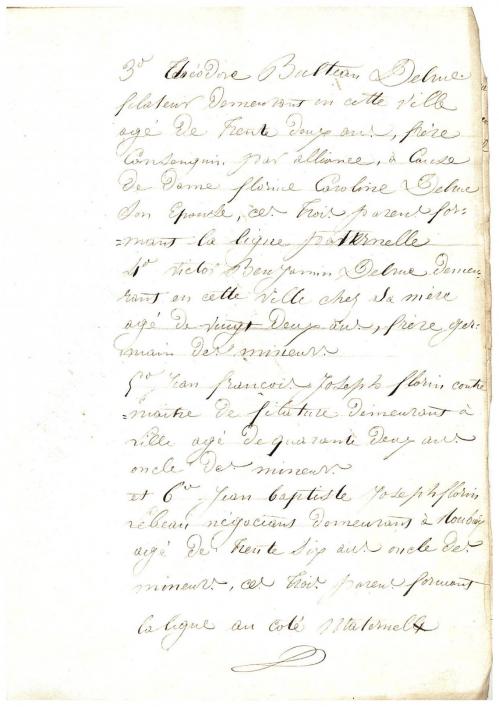 3o Théodore Bulteau Delrue
filateur demeurant en cette ville
agé de trente deux ans, frère
Consenguin par alliance, à Cause
de dame florine Caroline Delrue
Son Epouse, ces trois parens for-
=mant la ligne paternelle
4o victor Benjamin Delrue demeu-
rant en cette ville chez Sa mère
agé de vingt deux ans, frère ger-
main des mineurs
5o Jean françois Joseph florin contre
=maitre de filature demeurant à
ville agé de quarante deux ans
oncle des mineurs
et 6o Jean baptiste Joseph florin
négociant demeurant à Roubaix
agé de trente Six ans oncle des
mineurs, ces trois parens formant
la ligne au coté Maternelle